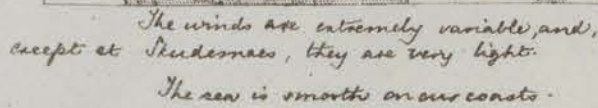 The winds are extremely variable, and,
except at Skudesnaes, they are very light.
The sea is smooth on our coasts.